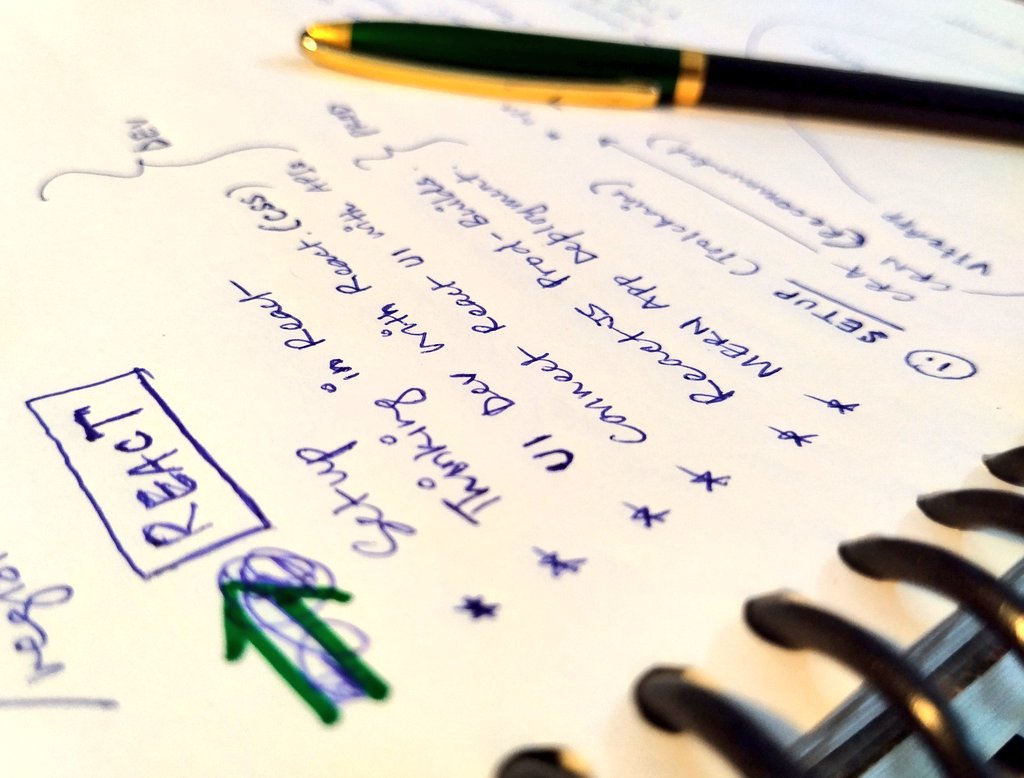 REACT
* Setup
* Thinking in React
* UI Dev with React. (CSS)
* Connect React UI with APIs } DEV
* React JS Prod-Builds.
* MERN APP Deployment. } PROD
1: SETUP (Toolchains)
CRA (Recommended)
CRN
ViteApp